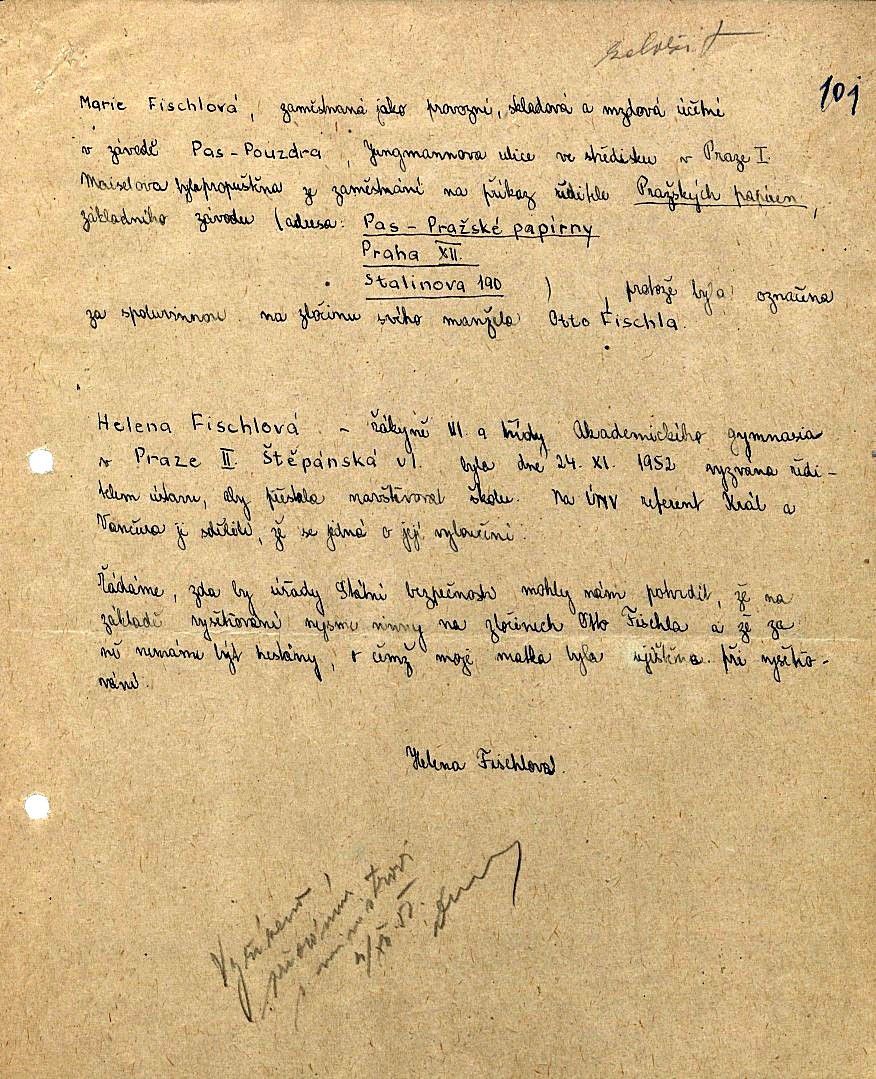 založit
101
Marie Fischlová, zaměstnaná jako provozní, skladová a mzdová účetní
v závodě Pas-Pouzdra, Jungmannova ulice ve středisku v Praze I.
Maiselova byla propuštěna ze zaměstnání na příkaz ředitele Pražských papíren,
základního závodu (adresa: Pas - Pražské papírny
Praha XII.
Stalinova 190 ), protože byla označena
za spoluvinnou na zločinu svého manžela Otto Fischla.
Helena Fischlová - žákyně III. a třídy Akademického gymnasia
v Praze II. Štěpánská ul. byla dne 24. XI. 1952 vyzvána ředi-
telem ústavu, aby přestala navštěvovat školu. Na ÚNV referent Král a
Vančura jí sdělili, že se jedná o její vyloučení.
Žádáme, zda by úřady Státní bezpečnosti mohly nám potvrdit, že na
základě vyšetřování nejsme vinny na zločinech Otto Fischla a že za
ně nemáme být trestány, o čemž moje matka byla ujištěna při vyšetřo-
vání.
Helena Fischlová.
Vyřízeno
s ministrem
4/XII.52.